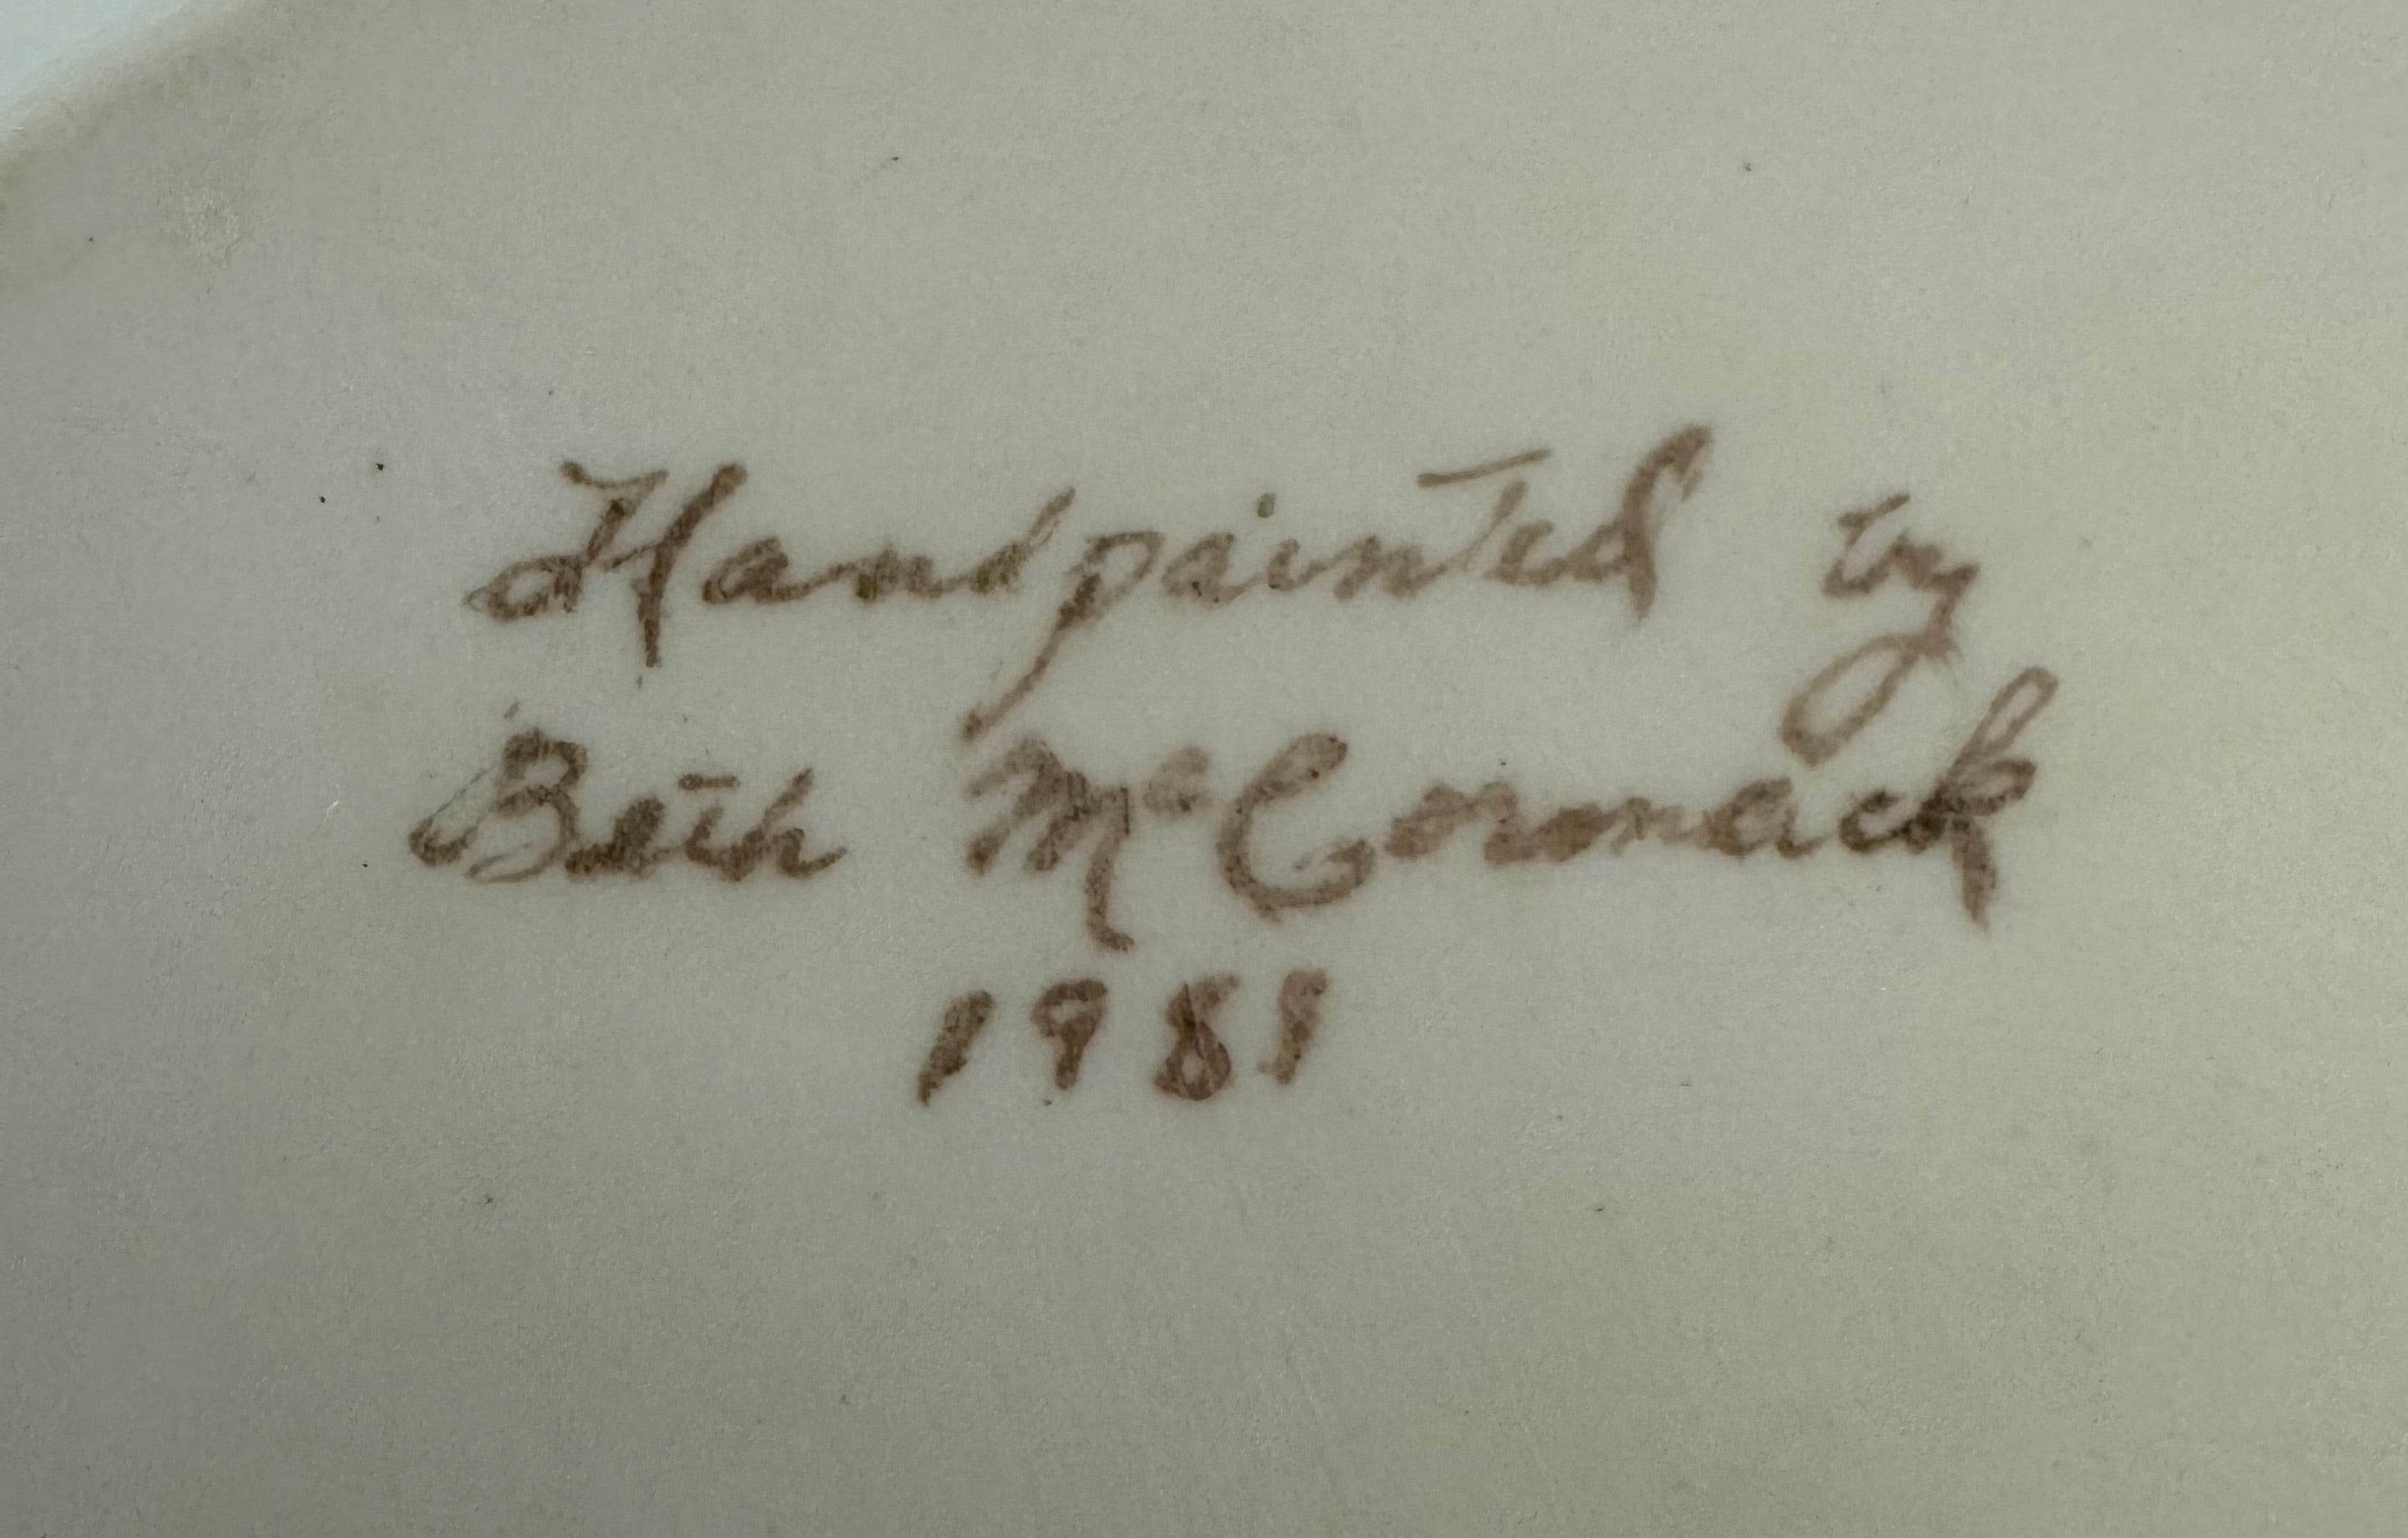 Handpainted by
Beth McCormack
1981